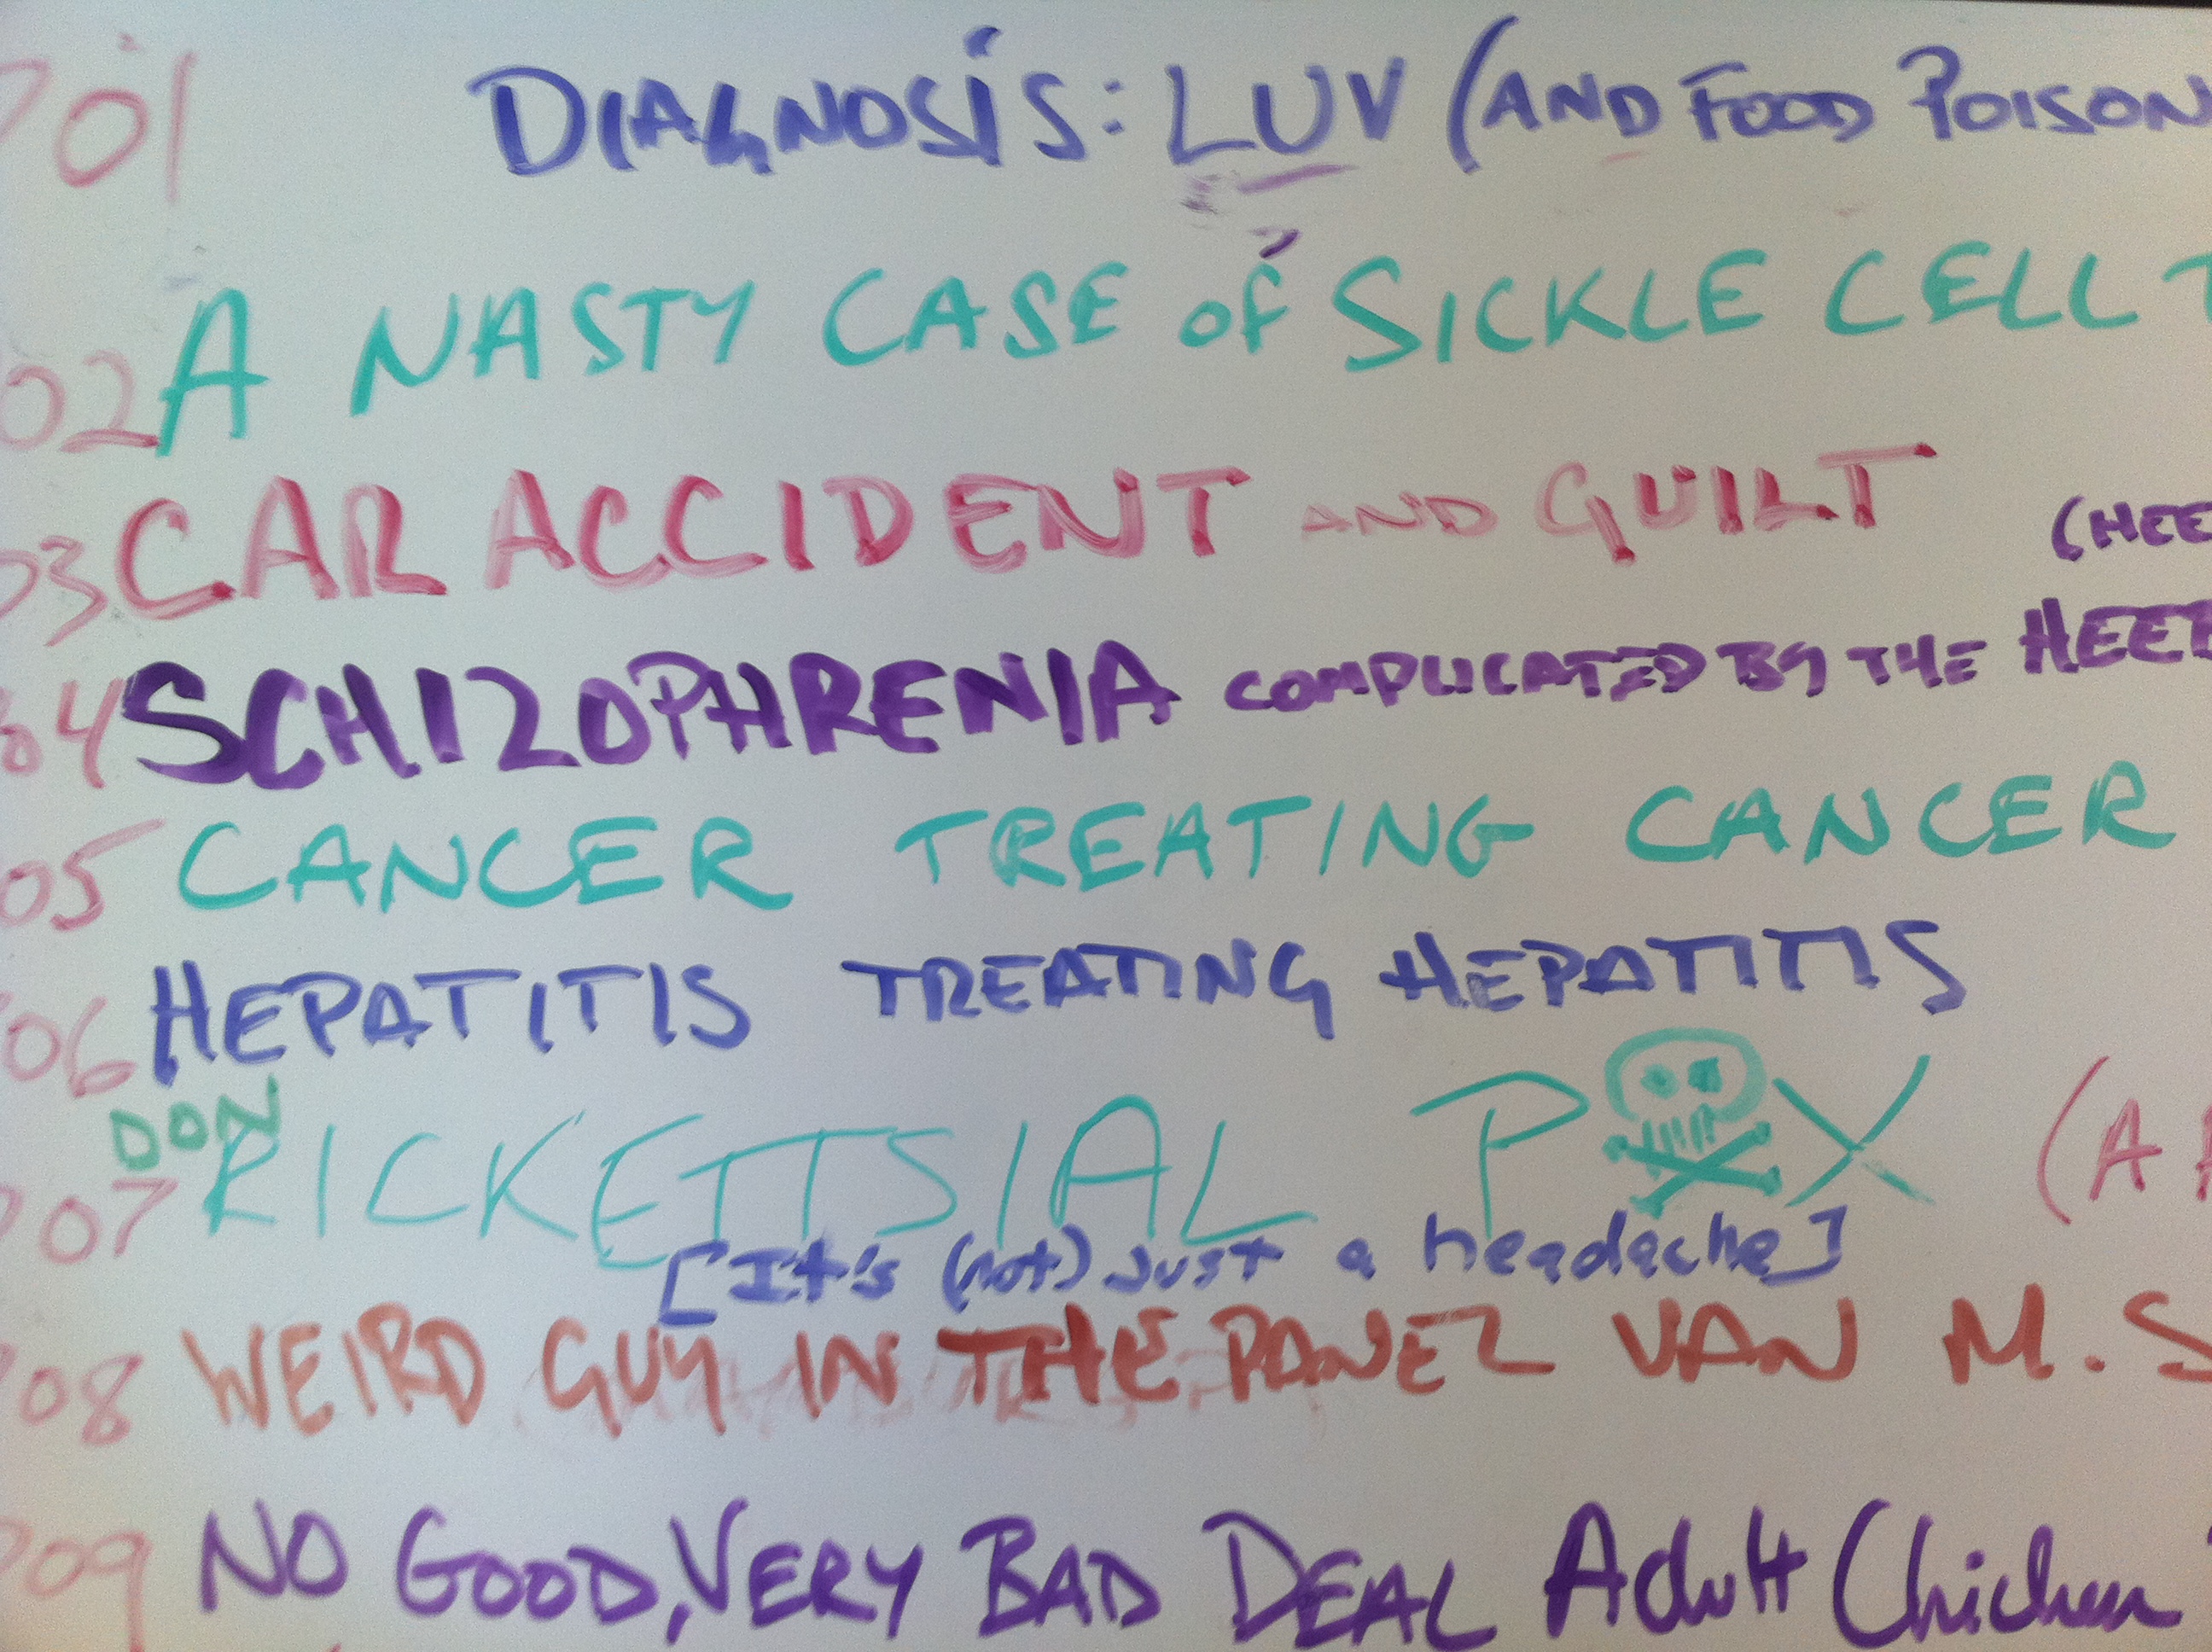 701 DIAGNOSIS: LUV (AND FOOD POISON
02 A NASTY CASE of SICKLE CELL T
03 CAR ACCIDENT AND GUILT (HEE
04 SCHIZOPHRENIA COMPLICATED BY THE HEEB
05 CANCER TREATING CANCER
06 HEPATITIS TREATING HEPATITIS
DON
707 RICKETTSIAL POX (A A
[It's (not) Just a headache]
708 WEIRD GUY IN THE PANEL VAN M.S
709 NO GOOD, VERY BAD DEAL Adult Chicken